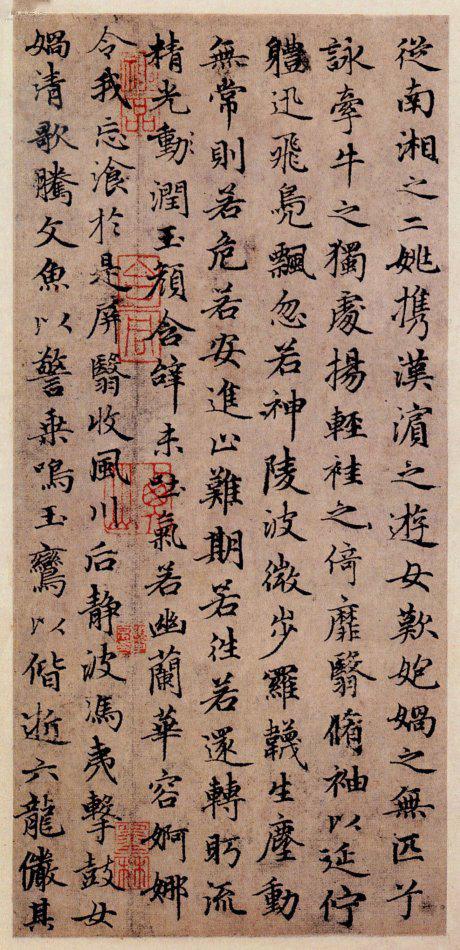 從南湘之二姚携漢濱之遊女歎㚿媧之無匹兮
詠牽牛之獨處揚輕袿之倚靡翳脩袖以延佇
軆迅飛鳧飄忽若神陵波微步羅韈生塵動
無常則若危若安進止難期若往若還轉眄流
精光動潤玉顏含辝未吐氣若幽蘭華容婀娜
令我忘飡於是屏翳收風川后静波馮夷擊鼓女
媧清歌騰文魚以警乗鳴玉鸞以偕逝六龍儼其